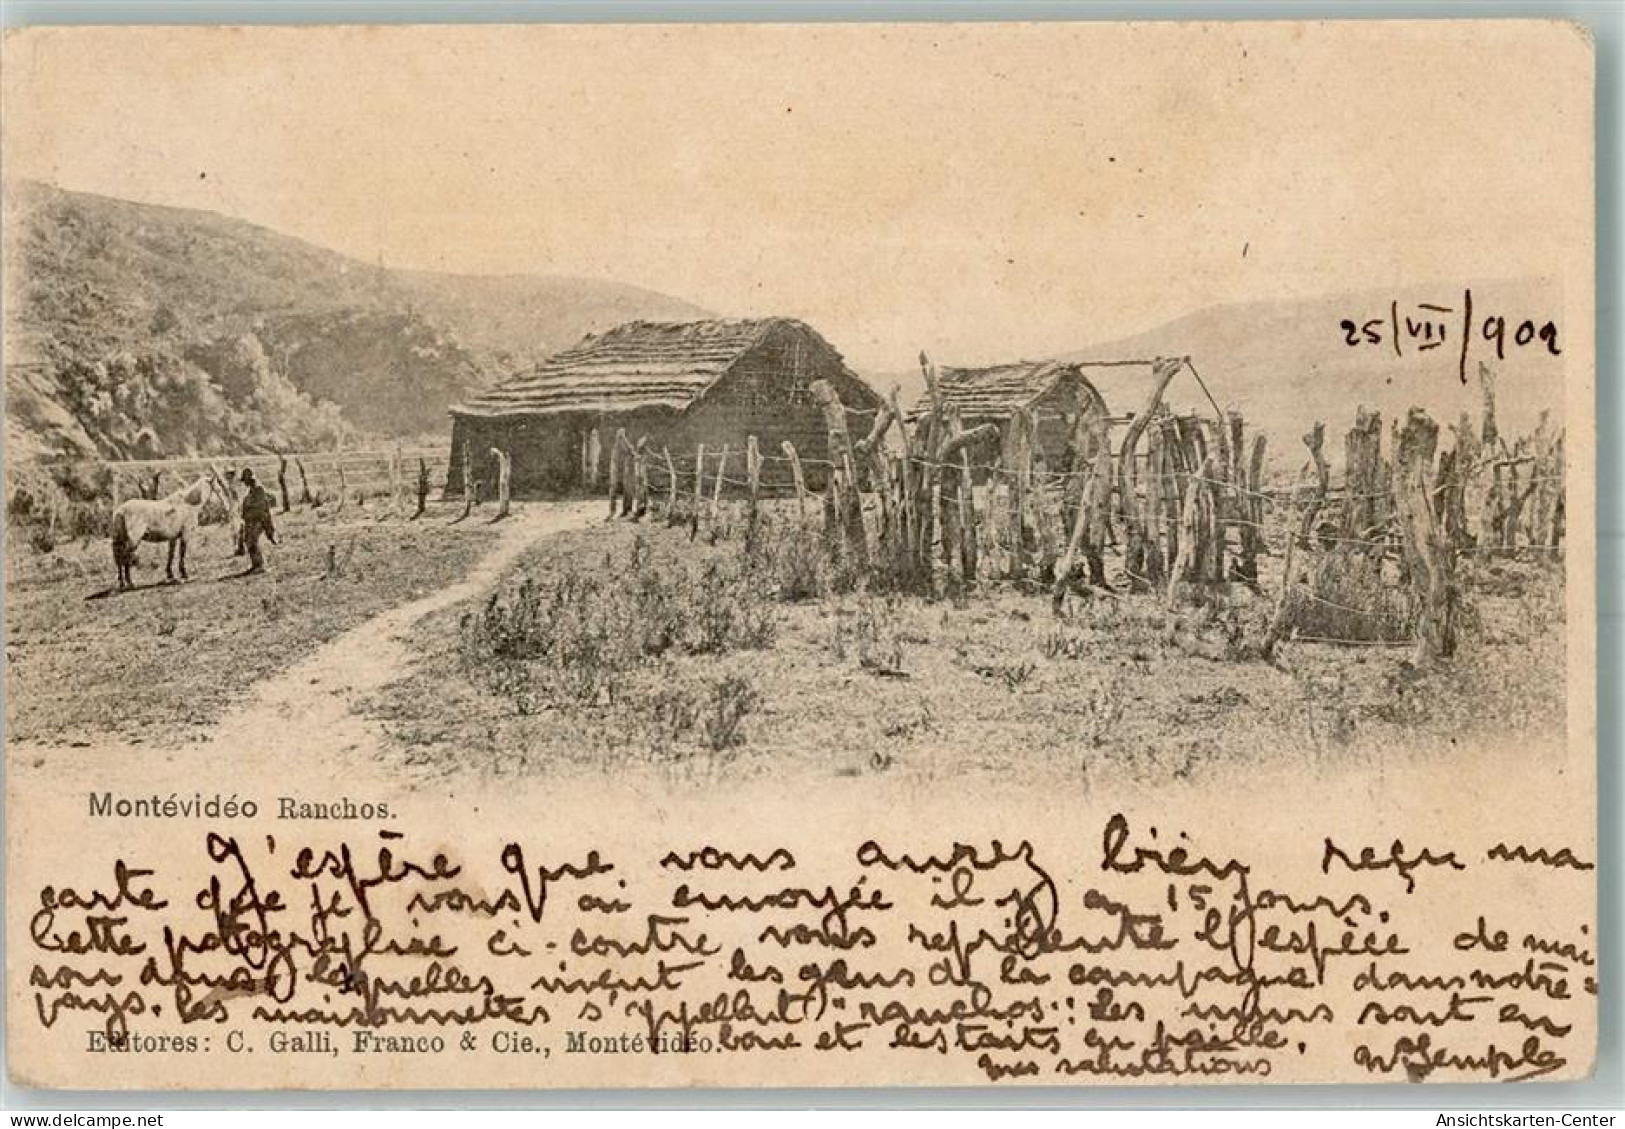 25/VII/902
Montévidéo Ranchos.
J'espère que vous aurez bien reçu ma
carte que je vous ai envoyée il y a 15 jours.
Cette potographie ci-contre vous représente l'espèce de mai
son dans lesquelles vivent les gens de la campagne dans notre
pays. Les maisonnettes s'appellent "ranchos": Les murs sont en
Editores: C. Galli, Franco & Cie., Montévidéo. boue et les taits en paille.
mes salutations
Ansichtskarten-Center